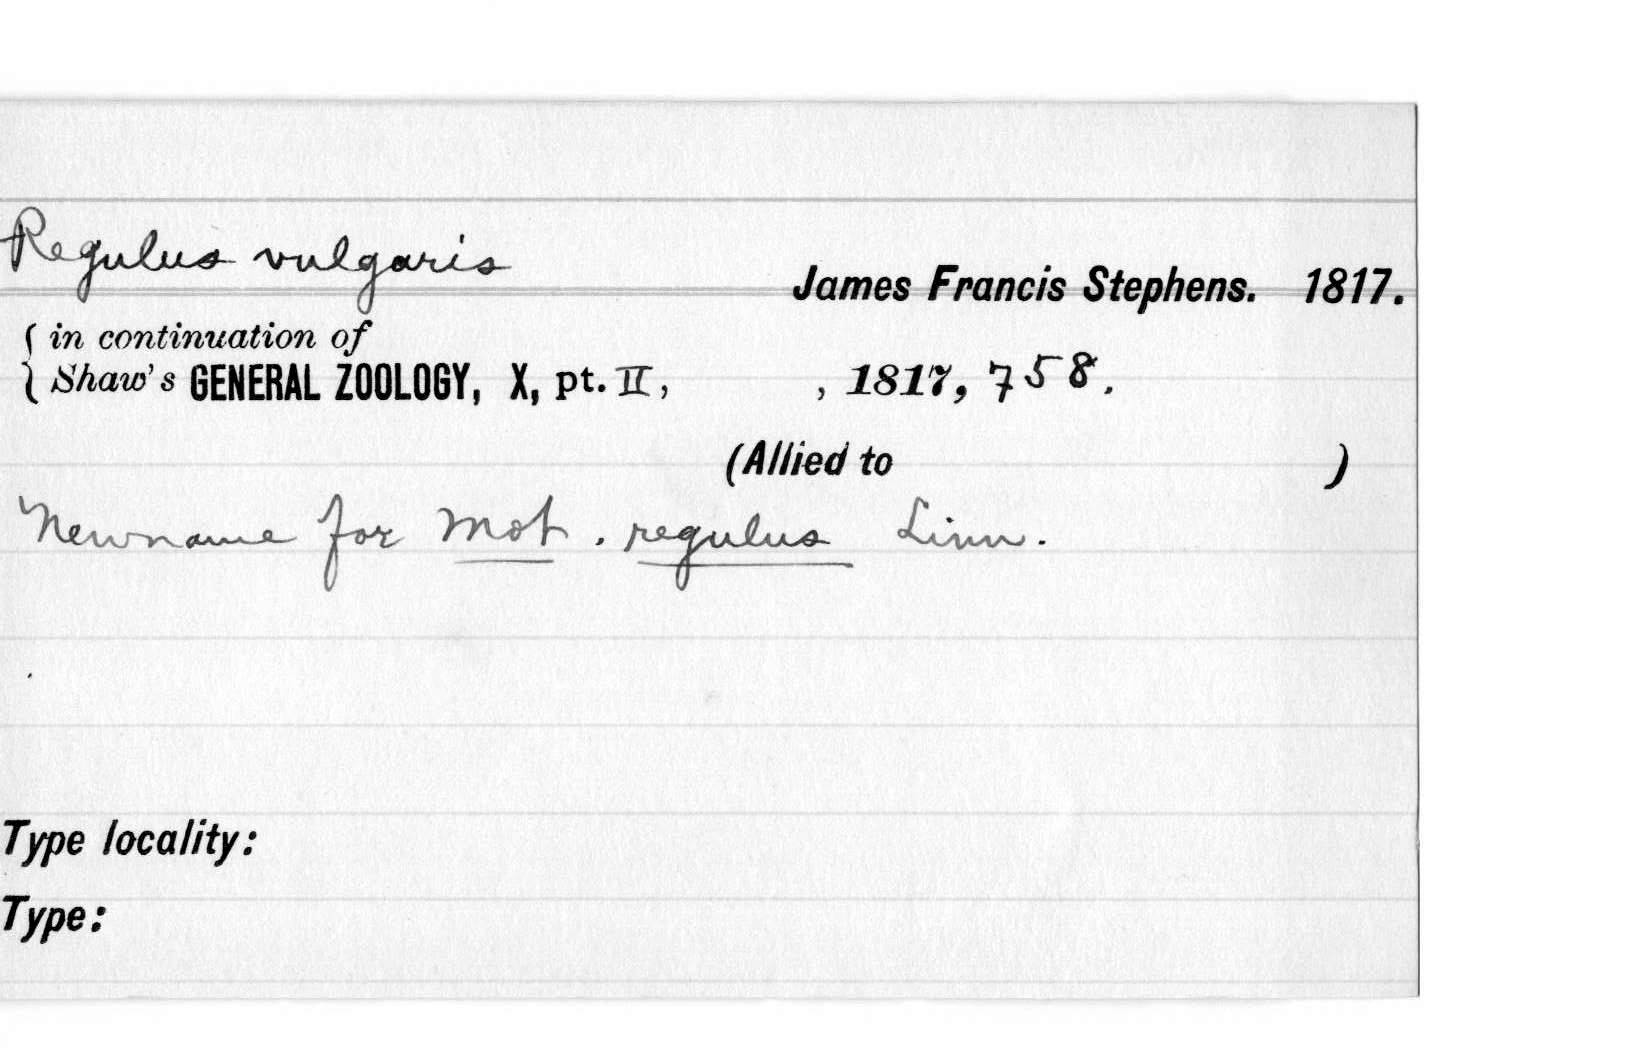 Regulus vulgaris
James Francis Stephens. 1817.
{ in continuation of
Shaw's GENERAL ZOOLOGY, X, pt. II, , 1817, 758.
(Allied to )
New name for Mot. regulus Linn.
Type locality:
Type: